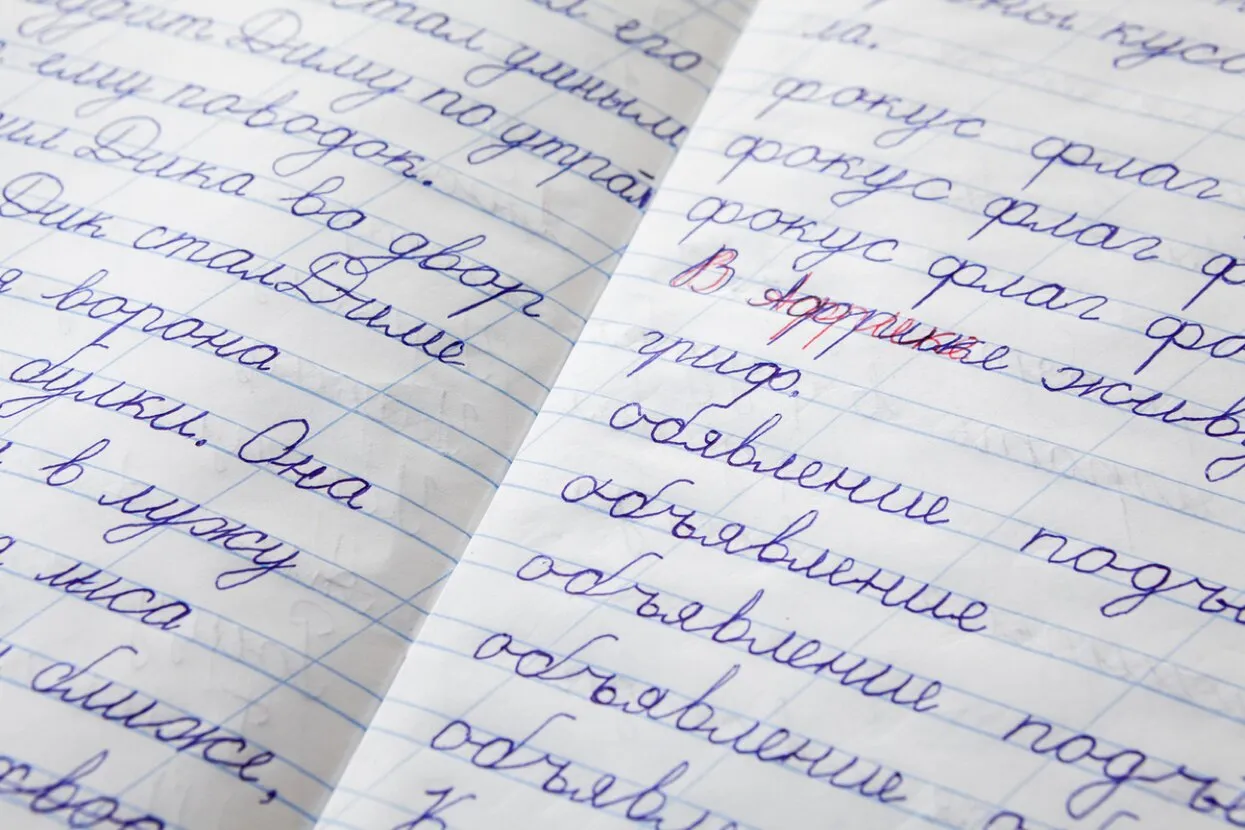 его
стал умным
удит Диму по утрам
ему поводок.
ил Дика во двор
Дик стал Диме
я ворона
булки. Она
в лужу
а лиса
ближе,
ны кус
ла.
фокус флаг
фокус флаг ф
фокус флаг фо
В Африке живу
гриф.
обявление подъе
объявление
объявление подъе
объявление об
объявл
К